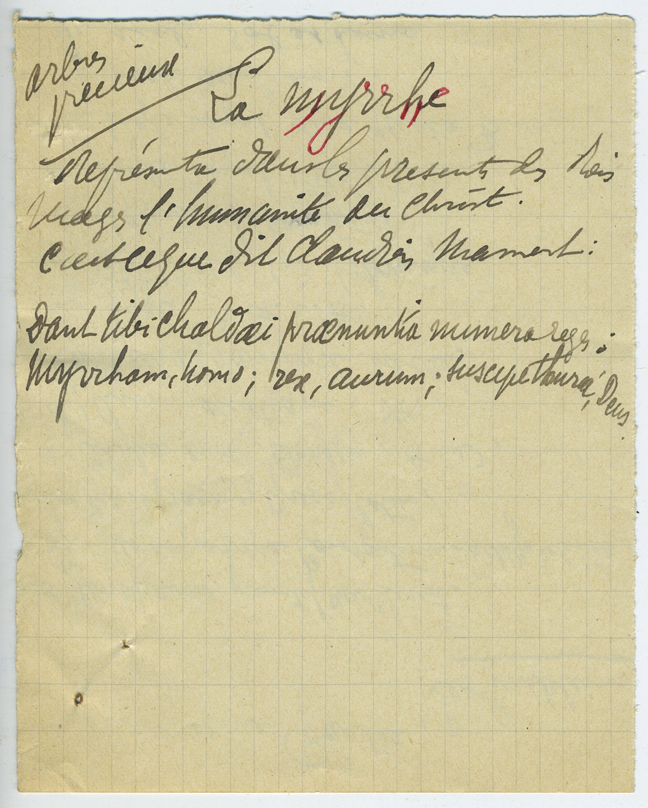 arbres
précieux
La myrrhe
Représente dans les présents des Rois
Mages l'humanité du Christ.
C'est ce que dit Claudien Mamert :
Dant tibi chaldæi prænuntia munera reges :
Myrrham, homo; rex, aurum; suscipe thura, Deus.